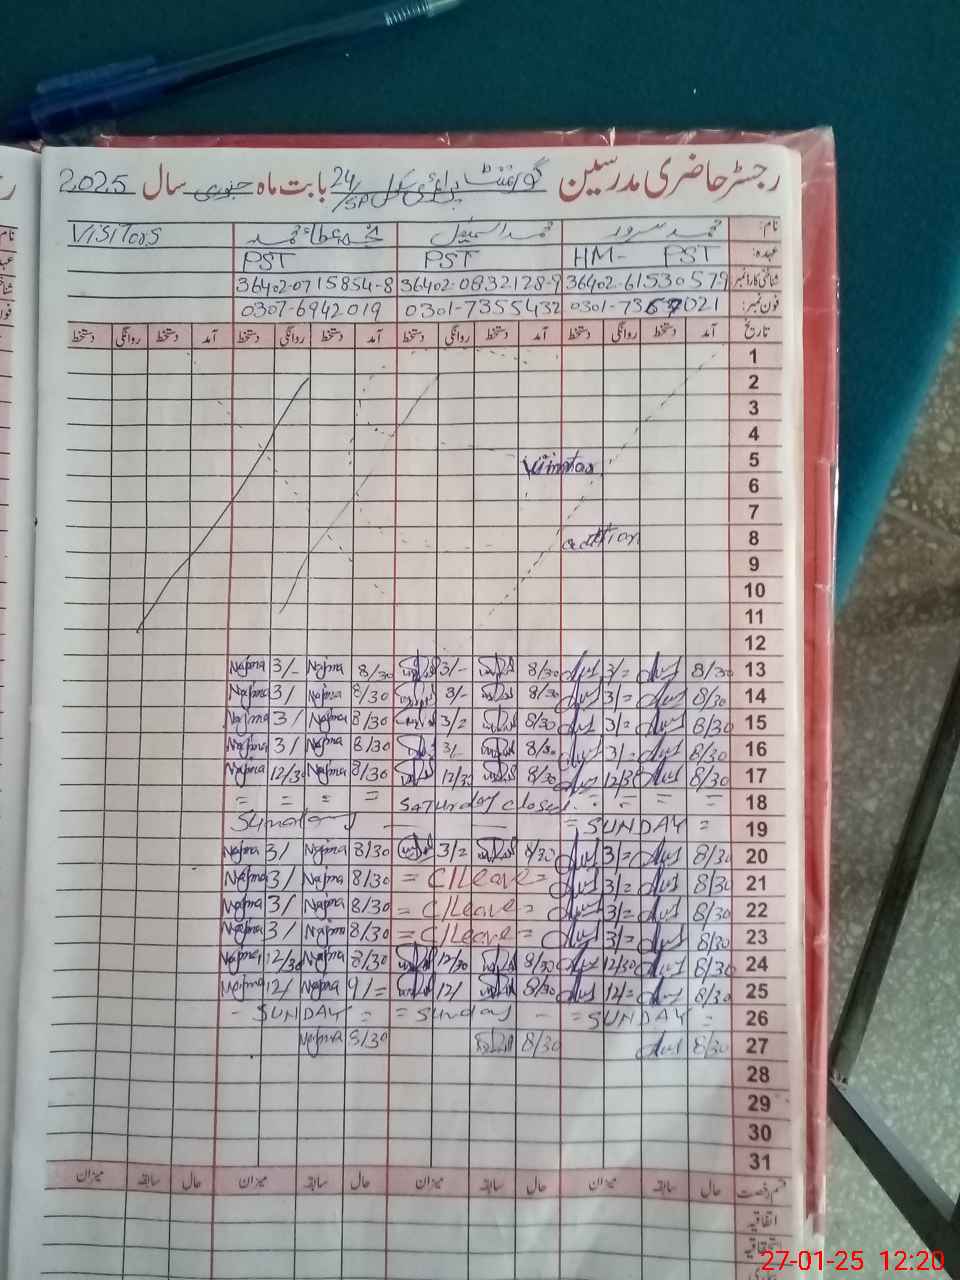 رجسٹر حاضری مدرسین گورنمنٹ پرائمری سکول 24/SP بابت ماہ جنوری سال 2025
نام: محمد سرور محمد اسمعیل VISITORS
عہدہ: HM- PST PST PST
شناختی کارڈ نمبر: 36402-0832128-9 36402-0715854-8
فون نمبر: 0301-7355432 0307-6942019
تاریخ آمد دستخط روانگی دستخط آمد دستخط روانگی دستخط آمد دستخط روانگی دستخط آمد دستخط روانگی دستخط
1
2
3
4
5
6
7
8
9
10
11
12
13 8/30 3/= 8/30 3/- 8/30 Najma 3/- Najma
14 8/30 3/= 8/30 3/- 8/30 Najma 3/ Najma
15 8/30 3/= 8/30 3/= 8/30 Najma 3/ Najma
16 8/30 3/= 8/30 3/- 8/30 Najma 3/ Najma
17 8/30 12/30 8/30 12/30 8/30 Najma 12/30 Najma
18 = = = = Saturday closed. = = = =
19 = SUNDAY = — — Sunday
20 8/30 3/= 8/30 3/= 8/30 Najma 3/ Najma
21 8/30 3/= = C/Leave = 8/30 Najma 3/ Najma
22 8/30 3/= = C/Leave = 8/30 Najma 3/ Najma
23 8/30 3/= = C/Leave = 8/30 Najma 3/ Najma
24 8/30 12/30 8/30 12/30 8/30 Najma 12/30 Najma
25 8/30 12/= 8/30 12/ 9/= Najma 12/ Najma
26 = SUNDAY = = Sunday - - SUNDAY =
27 8/30 8/30 8/30 Najma
28
29
30
31
قسم رخصت حال سابقہ میزان حال سابقہ میزان حال سابقہ میزان حال سابقہ میزان
اتفاقیہ
استحقاقیہ
27-01-25 12:20